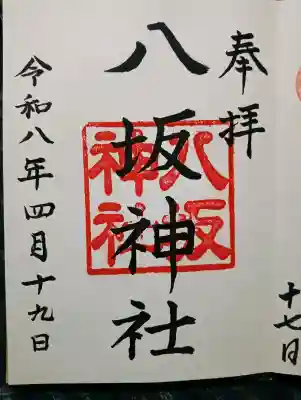 奉拝
八坂神社
八坂
神社
令和八年四月十九日
十七日